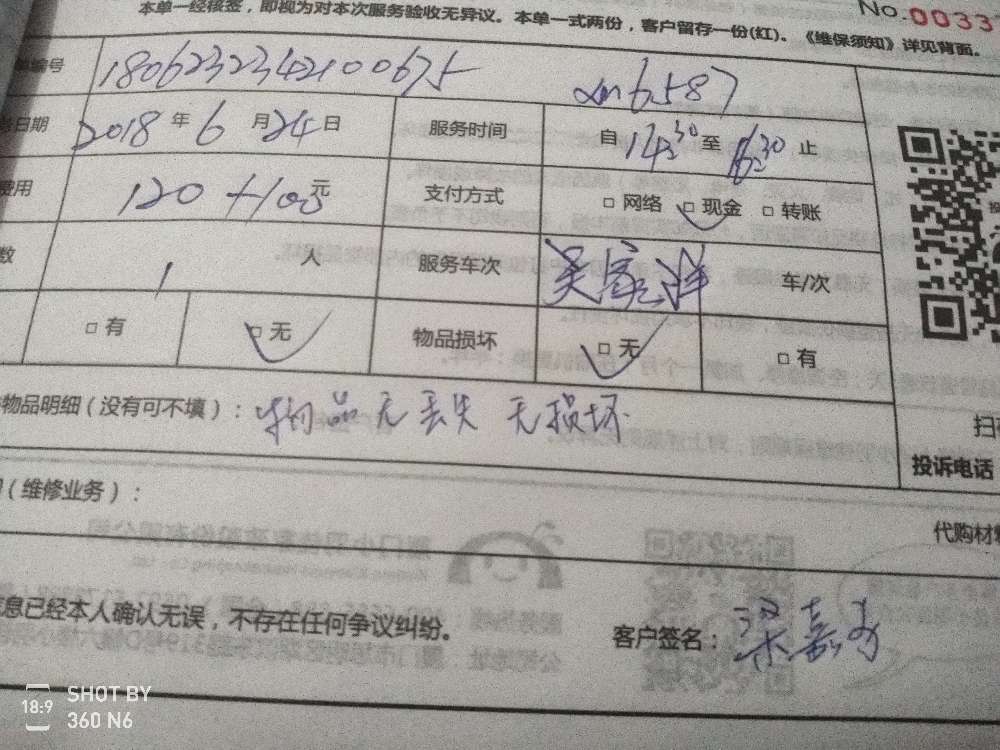 本单一经核签，即视为对本次服务验收无异议。本单一式两份，客户留存一份(红)。《维保须知》详见背面。
No.0033
编号 180623234210067 xm6587
日期 2018年6月24日 服务时间 自14:30至16:30止
费用 120+100元 支付方式 □网络 □现金 □转账
数 1人 服务车次 吴家洋 车/次
□有 □无 物品损坏 □无 □有
物品明细（没有可不填）： 物品无丢失 无损坏
扫
投诉电话
（维修业务）：
代购材
息已经本人确认无误，不存在任何争议纠纷。
客户签名：梁嘉
18:9 SHOT BY
360 N6